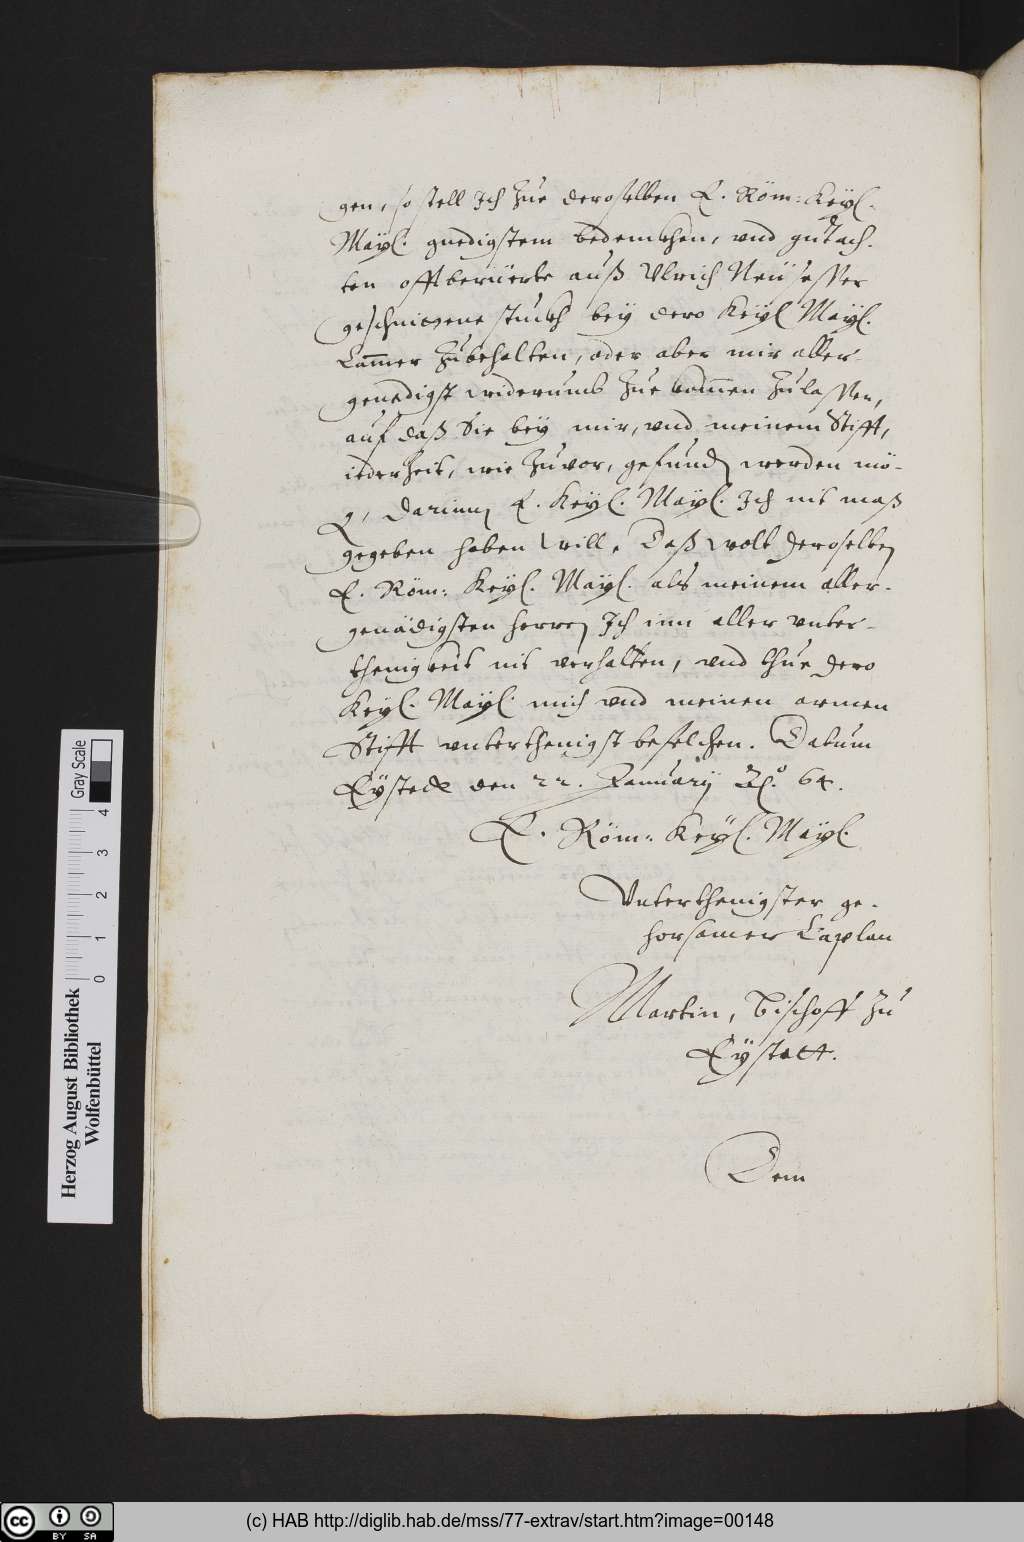 gen, so stell Ich zue deroselben E. Röm: Keyl.
Mayl. gnedigstem bedenckhen, vnd gutach-
ten offtberüerte auß Ulrich Neüsesser
geschnizene stuckh bey dero Keyl Mayl.
Cam̄er zubehalten, oder aber mir aller-
genedigst widerumb zue kom̄en zulassen,
auf daß Sie bey mir, vnd meinem Stifft,
iederzeit, wie zuvor, gefunden werden mö-
gen, Darinnen E. Keyl. Mayl. Ich nit maß
gegeben haben will, Daß wolt deroselben
E. Röm: Keyl. Mayl. als meinem aller-
genädigsten herren Ich inn aller vnter-
thenigkeit nit verhalten, vnd thue dero
Keyl. Mayl. mich vnd meinen armen
Stifft vnterthenigst befelchen. Datum
Eystedt den 22. January 64.
E. Röm: Keyl. Mayl.
Vnterthenigster ge-
horsamer Caplan
Martin, Bischoff zu
Eystett.
Dem
Herzog August Bibliothek
Wolfenbüttel
Gray Scale
0 1 2 3 4
cc BY SA
(c) HAB http://diglib.hab.de/mss/77-extrav/start.htm?image=00148